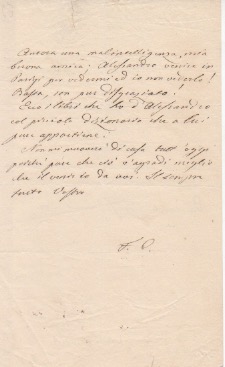 Ancora una mal'intelligenza, mia
buona amica: Alessandro venire in
Parigi per vedermi ed io non vederlo!
Basta, son pur disgraziato!
Ecco i libri che ho d'Alessandro
col piccolo dizionario che a lui
pure appartiene.
Non mi muoverò di casa tutt'oggi
perché pare che ciò v'aggradi meglio
che il venir io da voi. Il sempre
tutto Vostro
F. C.